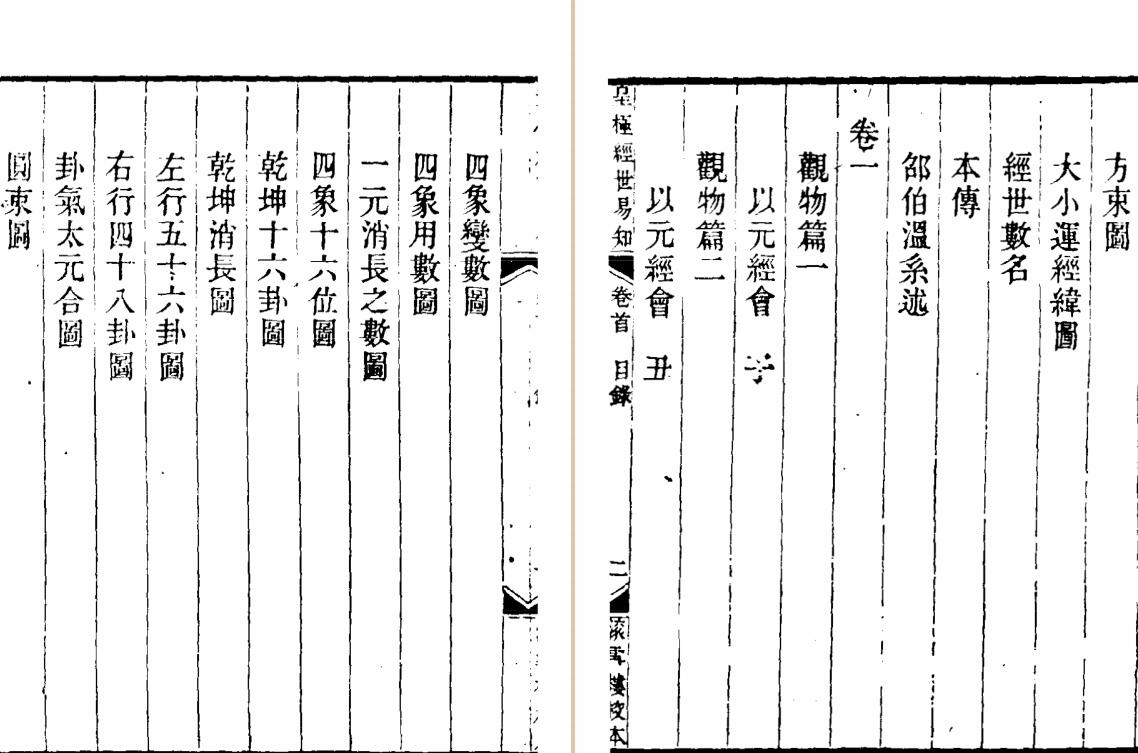 四象變數圖
四象用數圖
一元消長之數圖
四象十六位圖
乾坤十六卦圖
乾坤消長圖
左行五十六卦圖
右行四十八卦圖
卦氣太元合圖
圓東圖
方東圖
大小運經緯圖
經世數名
本傳
邵伯溫系述
卷一
觀物篇一
以元經會 子
觀物篇二
以元經會 丑
皇極經世易知 卷首 目錄 二 雪樓校本